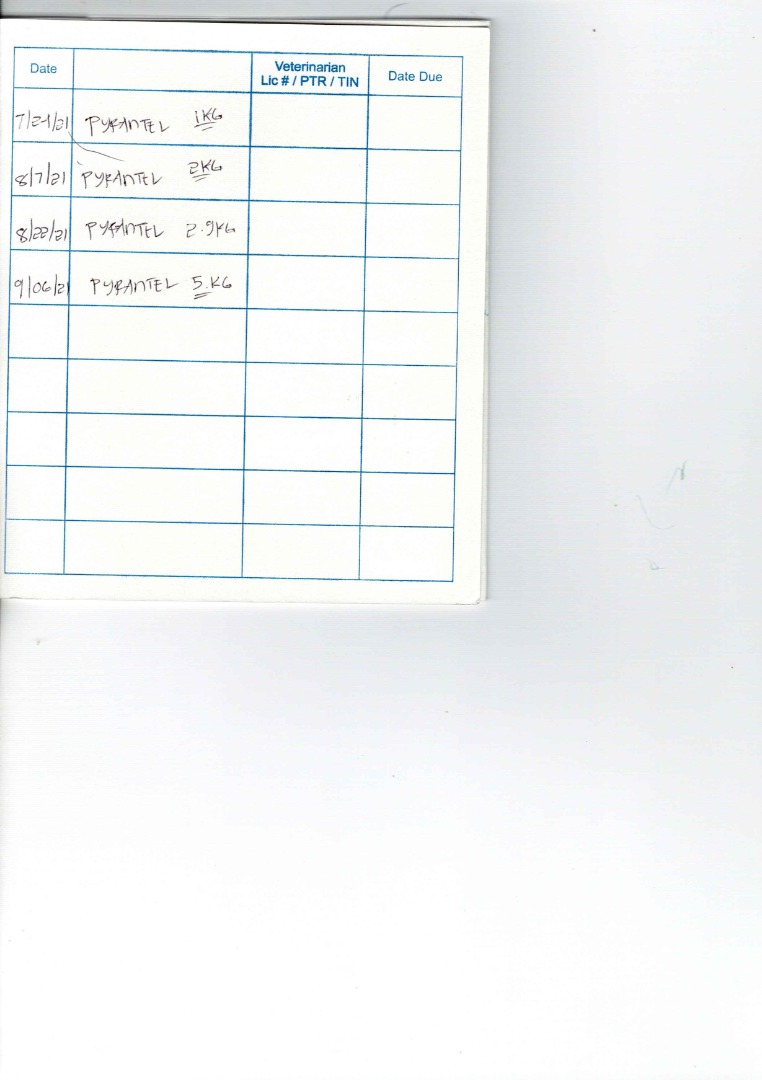 Date Veterinarian Lic # / PTR / TIN Date Due
7/24/21 PYRANTEL 1KG
8/7/21 PYRANTEL 2KG
8/22/21 PYRANTEL 2.9KG
9/06/21 PYRANTEL 5.KG